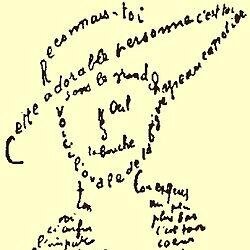 Reconnais-toi
Cette adorable personne c'est toi
Sous le grand chapeau canotier
Œil
Nez
la bouche
Voici l'ovale de ta figure
Ton cou
ici enfin
l'imparfaite
un peu
plus bas
c'est ton
coeur